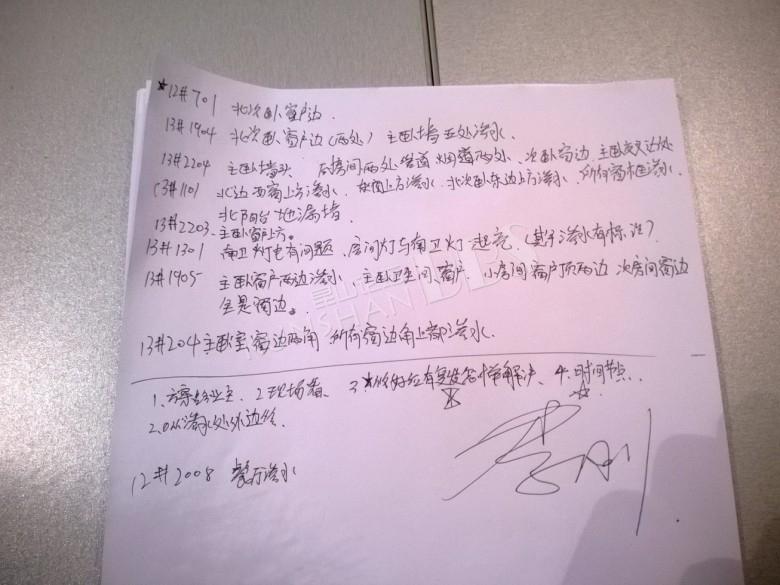 ★12#701 北次卧窗户边.
13#1904 北次卧窗户边(两处)主卧墙五处渗水.
13#2204 主卧墙头 房间两处 烟道两处、次卧窗边.主卧
13#1101 北边西窗上方渗水.东窗上方渗水.北次卧东边上方渗水.所有窗框渗水
北阳台地漏堵.
13#2203.主卧窗上方。
13#1301 南卫灯也有问题.房间灯与南卫灯一起亮.(其于渗水有标注)
13#1905 主卧窗户两边渗水.主卧卫生间窗户.小房间窗户顶两边 次房间窗边
全是窗边。
13#204主卧室窗边两角 所有窗边角上都渗水.
1、方案给业主.2现场看、3 修好后有复发 解决、4.时间节点.
2、从渗水处外边
12#2008 餐厅渗水
李刚
星山 BBS